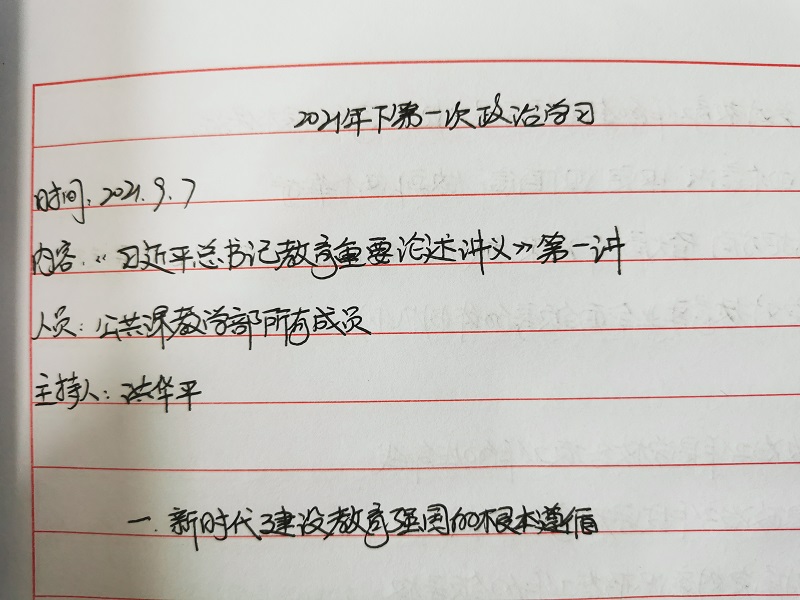 2021年下第一次政治学习
时间:2021.9.7
内容:《习近平总书记教育重要论述讲义》第一讲
人员:公共课教学部所有成员
主持人:洪华平
一.新时代建设教育强国的根本遵循